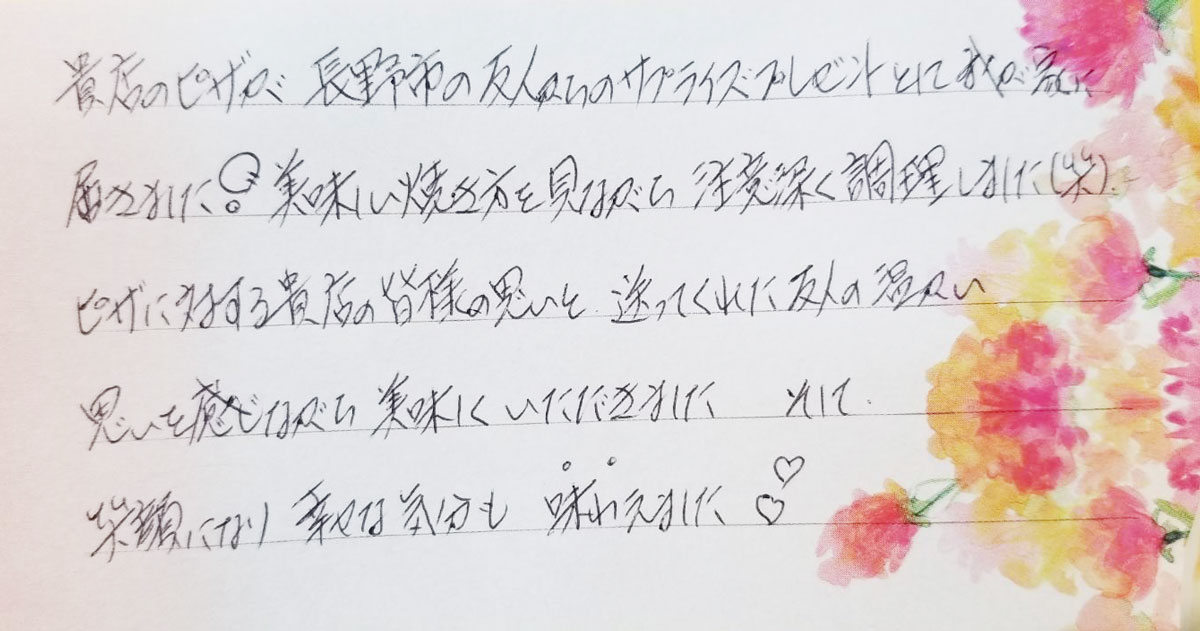 貴店のピザが 長野市の友人からのサプライズプレゼントとして我が家に
届きました！美味しい焼き方を見ながら 注意深く調理しました(笑)
ピザに対する貴店の皆様の思いと 送ってくれた友人の温かい
思いを感じながら 美味しくいただきました そして
笑顔になり 幸せな気分も 味わえました♡♡